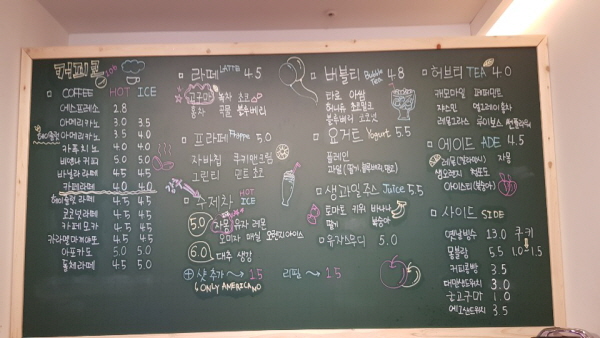 커피콕
COFFEE HOT ICE
에스프레소 2.8
아메리카노 3.0 3.5
헤이즐넛 아메리카노 3.5 4.0
카푸치노 4.0 4.0
비엔나 커피 5.0 5.0
바닐라 라떼 4.5 4.5
카페라떼 4.0 4.0
헤이즐넛 라떼 4.5 4.5
코코넛 라떼 4.5 4.5
카페모카 4.5 4.5
카라멜 마끼아또 4.5 4.5
아포카토 5.0 5.0
돌체라떼 4.5 4.5
라떼 LATTE 4.5
고구마 녹차 초코
홍차 곡물 블루베리
프라페 Frappe 5.0
자바칩 쿠키앤크림
그린티 민트 초코
수제차 HOT ICE
5.0 자몽 유자 레몬
오미자 매실 오렌지아이스
6.0 대추 생강
샷추가 → 1.5 리필 → 1.5
ONLY AMERICANO
버블티 Bubble Tea 4.8
타로 아쌈
허니듀 초코밀크
블루베리 코코넛
요거트 Yogurt 5.5
플레인
과일 (딸기, 블루베리, 망고)
생과일 주스 Juice 5.5
토마토 키위 바나나
딸기 복숭아
유자스무디 5.0
허브티 TEA 4.0
캐모마일 페퍼민트
쟈스민 얼그레이 홍차
레몬그라스 루이보스
에이드 ADE 4.5
레몬 자몽
청포도
아이스티 (복숭아)
사이드 SIDE
옛날빙수 13.0 쿠키
몰블랑 5.5 1.0~1.5
커피콩빵 3.5
3.0
군고구마 1.0
에그샌드위치 3.5